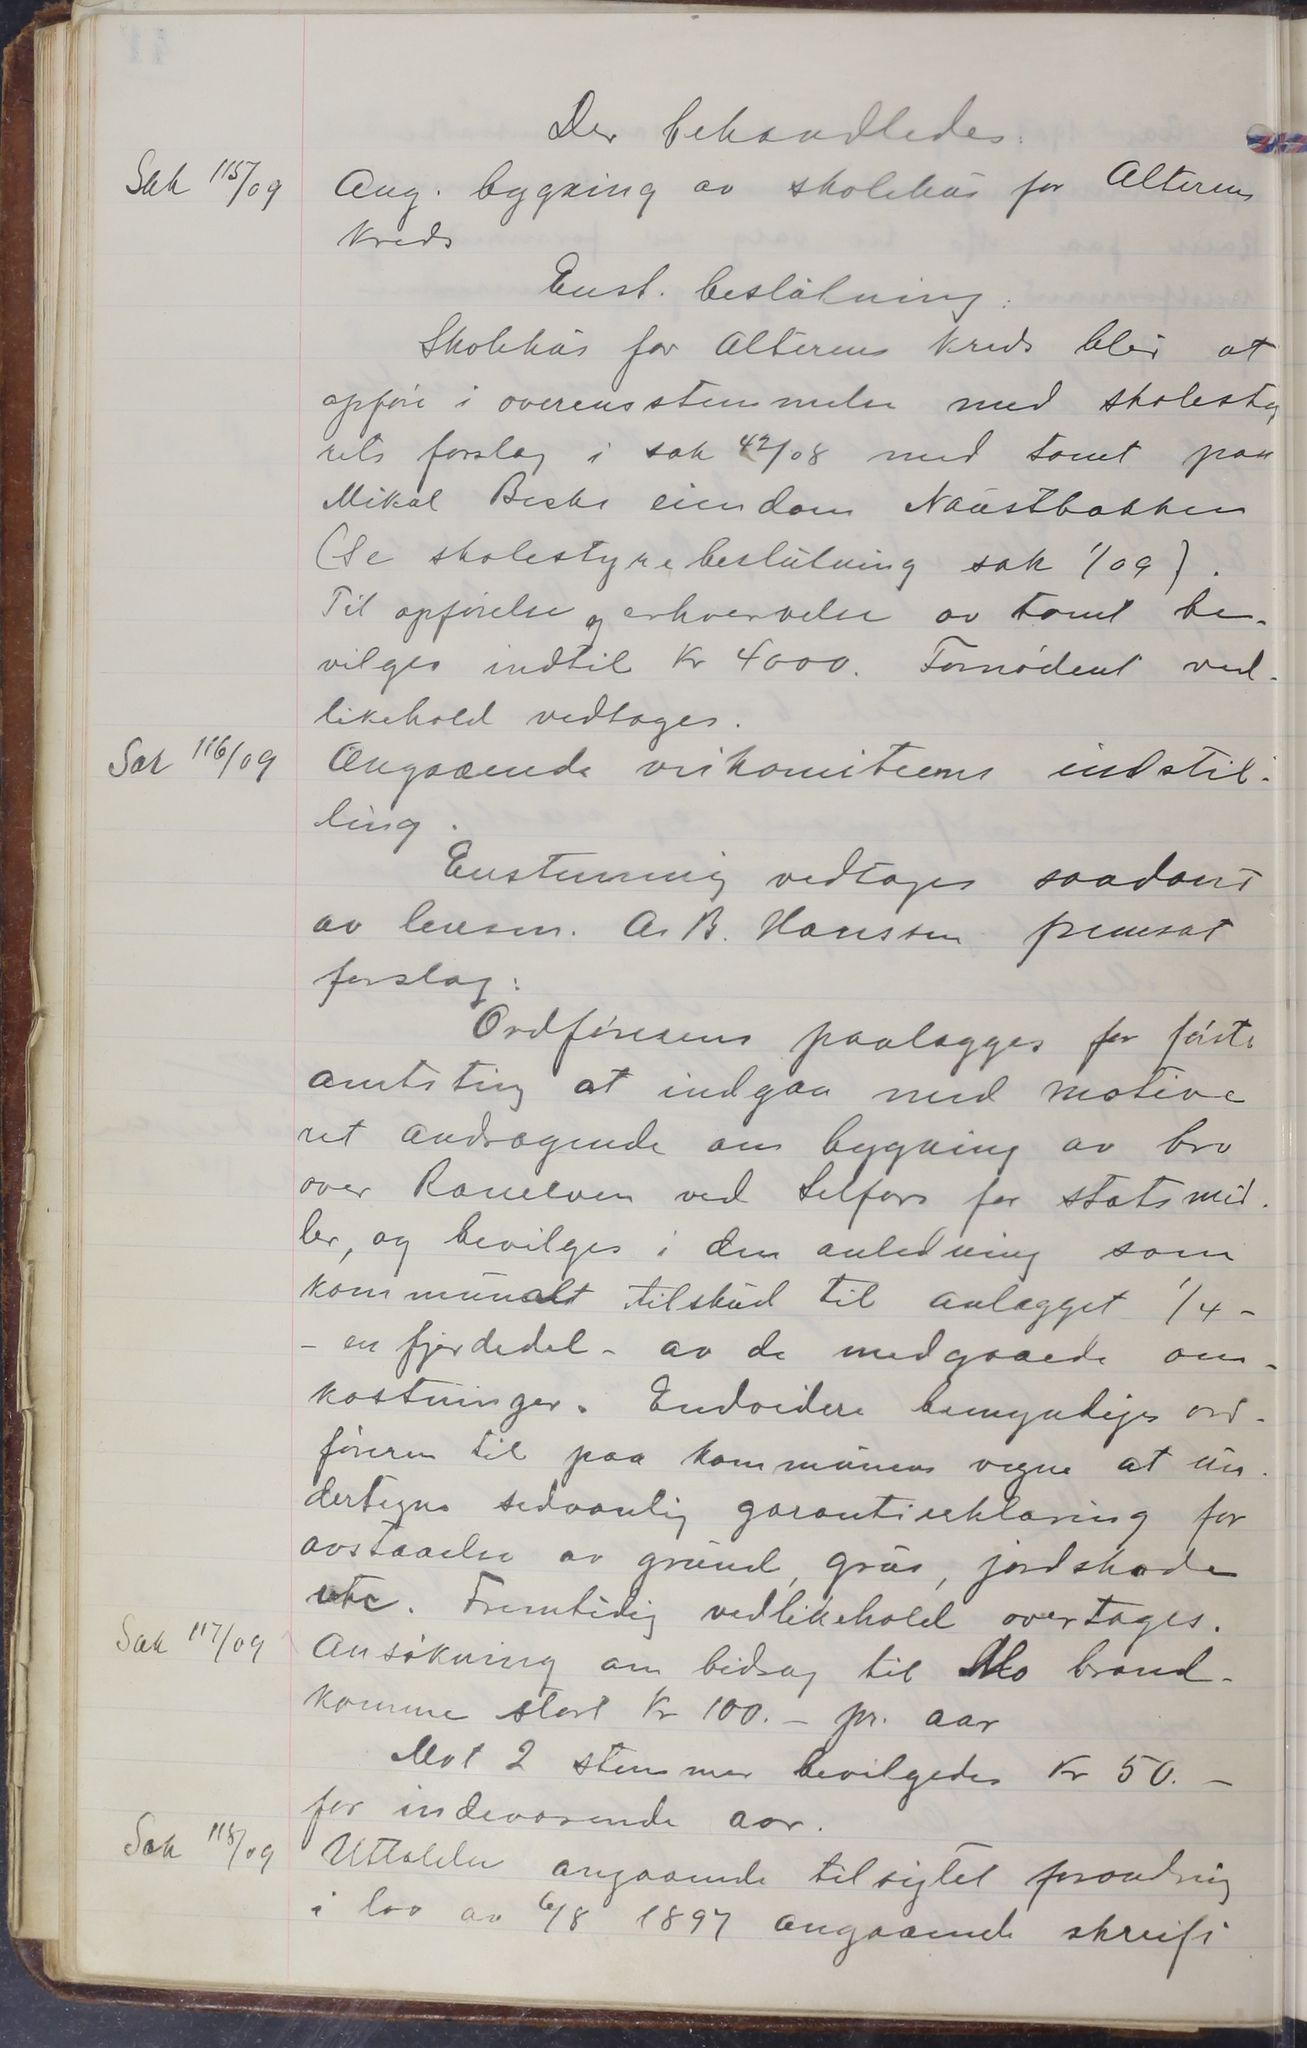 Der behandledes:
Sak 115/09 Ang. bygning av skolehus for Alterens
kreds
Enst. beslutning:
Skolehus for Alterens kreds blir at
opføre i overensstemmelse med skolesty
rets forslag i sak 42/08 med tomt paa
Mikal Beskes eiendom Naustbakken
(Se skolestyrebeslutning sak 1/09).
Til opførelse og erhvervelse av tomt be-
vilges indtil Kr 4000. Fornødent ved-
likehold vedtages.
Sak 116/09 Angaaende veikomiteens indstil-
ling.
Enstemmig vedtages saadant
av lensm. A. B. Hanssen fremsat
forslag:
Ordføreren paalægges for første
amtsting at indgaa med motive
ret andragende om bygning av bro
over Ranelven ved Selfors for statsmid-
ler, og bevilges i den anledning som
kommunalt tilskud til anlægget 1/4 -
- en fjerdedel - av de medgaaede om-
kostninger. Endvidere bemyndiges ord-
føreren til paa kommunens vegne at un-
dertegne sedvanlig garantierklæring for
avstaaelse av grund, grus, jordskade
etc. Fremtidig vedlikehold overtages.
Sak 117/09 Ansøkning om bidrag til Mo brand-
komme stort Kr 100.- pr. aar
Mot 2 stemmer bevilgedes Kr 50.-
for indeværende aar.
Sak 118/09 Uttalelse angaaende tilsigtet forandring
i lov av 6/8 1897 angaaende skreifi